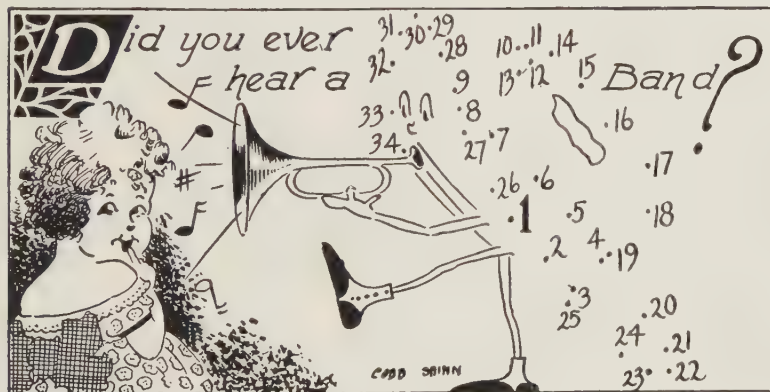 Did you ever
hear a Band?
31 30 29
28 10 11 14
32
13 12 15
9
33 8 16
34 27 7
17
26 6
1 5 18
2 4 19
3
25 20
24 21
23 22
COBB SHINN